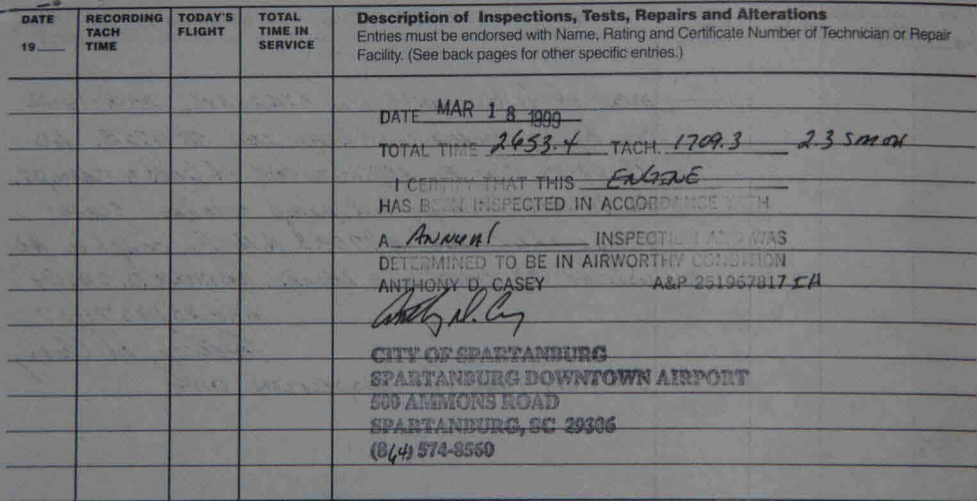 DATE
19___
RECORDING TACH TIME
TODAY'S FLIGHT
TOTAL TIME IN SERVICE
Description of Inspections, Tests, Repairs and Alterations
Entries must be endorsed with Name, Rating and Certificate Number of Technician or Repair
Facility. (See back pages for other specific entries.)
DATE MAR 18 1999
TOTAL TIME 2653.4 TACH. 1709.3 2.3 SMOH
I CERTIFY THAT THIS ENGINE
HAS BEEN INSPECTED IN ACCORDANCE WITH
A Annual INSPECTION AND WAS
DETERMINED TO BE IN AIRWORTHY CONDITION
ANTHONY D. CASEY A&P 251967817 IA
CITY OF SPARTANBURG
SPARTANBURG DOWNTOWN AIRPORT
500 AMMONS ROAD
SPARTANBURG, SC 29306
(864) 574-8560